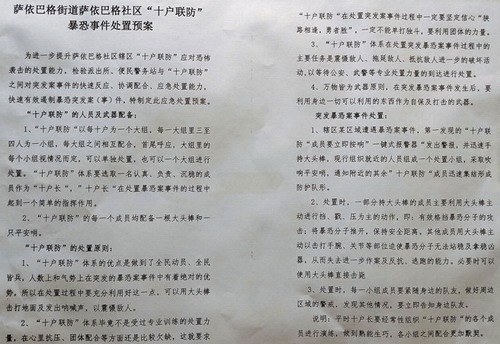 萨依巴格街道萨依巴格社区“十户联防”
暴恐事件处置预案
为进一步提升萨依巴格社区辖区“十户联防”应对恐怖
袭击的处置能力，检验派出所、便民警务站与“十户联防”
之间对突发案事件的快速反应、协调配合、应急处置能力，
快速有效遏制暴恐突发案（事）件，特制定此应急处置预案。
“十户联防”的人员及武器配备：
1、“十户联防”以每十户为一个大组，每一大组里三至
四人为一小组，每大组之间相互配合，首尾呼应，大组里的
每个小组视情况而定，可以单独处置，也可以一个大组进行
处置。“十户联防”体系要选取一名认真、负责、沉稳的成
员作为“十户长”，“十户长”在处置暴恐案事件的过程中
起到一个简单的指挥作用。
2、“十户联防”的每一个成员均配备一根大头棒和一
只平安哨。
“十户联防”的处置原则：
1、“十户联防”体系的优点是做到了全民动员、全民
皆兵，人数上和气势上在突发的暴恐案事件中有着绝对的优
势。所以在处置过程中要充分利用好这一点，可以用大头棒
击打地面及发出呐喊声，以震慑敌人。
2、“十户联防”体系毕竟不是受过专业训练的处置力
量，在心里抗压、团体配合等方面还是比较欠缺，这就要求
“十户联防”在处置突发案事件过程中一定要坚定信心“狭
路相逢，勇者胜”，一定不能单打独斗，要利用团体的力量。
3、“十户联防”体系在处置突发暴恐案事件过程中的
主要任务是震慑敌人、拖晃敌人、抵抗敌人进一步的破坏活
动，以等待公安、武警等专业处置力量的到达进行处置。
4、万物皆为武器原则，在突发暴恐案事件发生后，要
利用身边一切可以利用的东西作为自保及打击的武器。
突发暴恐案事件处置：
1、辖区某区域遭遇暴恐案事件，第一发现的“十户联
防”成员要立即按响“一键式报警器”发出警报，并迅速手
持大头棒，现行组织就近的人员组成一个处置小组，采取吹
响平安哨，通知附近的其余“十户联防”成员迅速集结形成
防护队形。
2、处置时，一部分持大头棒的成员主要利用大头棒主
动进行挡、戳、压为主的动作，即：有效格挡暴恐分子的攻
击；将暴恐分子推开，保持安全距离。其他成员用大头棒主
动以击打手腕、关节等部位迫使暴恐分子无法站稳及拿稳凶
器，从而失去进一步作案及反抗、逃跑的能力。必要时可以
使用大头棒直接击毙
3、处置时，每一小组成员要紧随身边的队友，做好周边
区域的警戒，发现其他情况，要立即告知身边队友。
说明：平时十户长要经常性组织“十户联防”的各个成
员进行演练，做到熟能生巧，各小组之间配合更加默契。